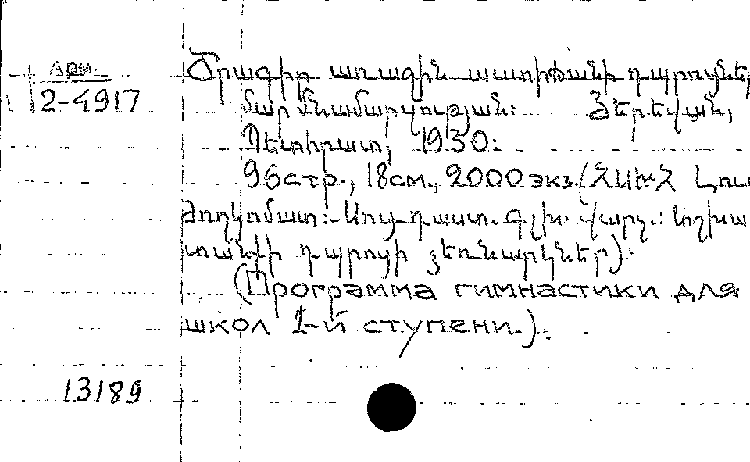 Арм.
2-4917
Ծրագիր առաջին աստիճանի դպրոցնե
մարմնամարզության: Յերեվան,
Պետհրատ, 1930:
96 стр., 18 см., 2000 экз. (ՀՍԽՀ Լուս
ժողկոմատ: Սոց. դաստ. գլխ. վարչ.: Աշխա
տանքի դպրոցի ձեռնարկներ):
(Программа гимнастики для
школ 1-й ступени.).
13189